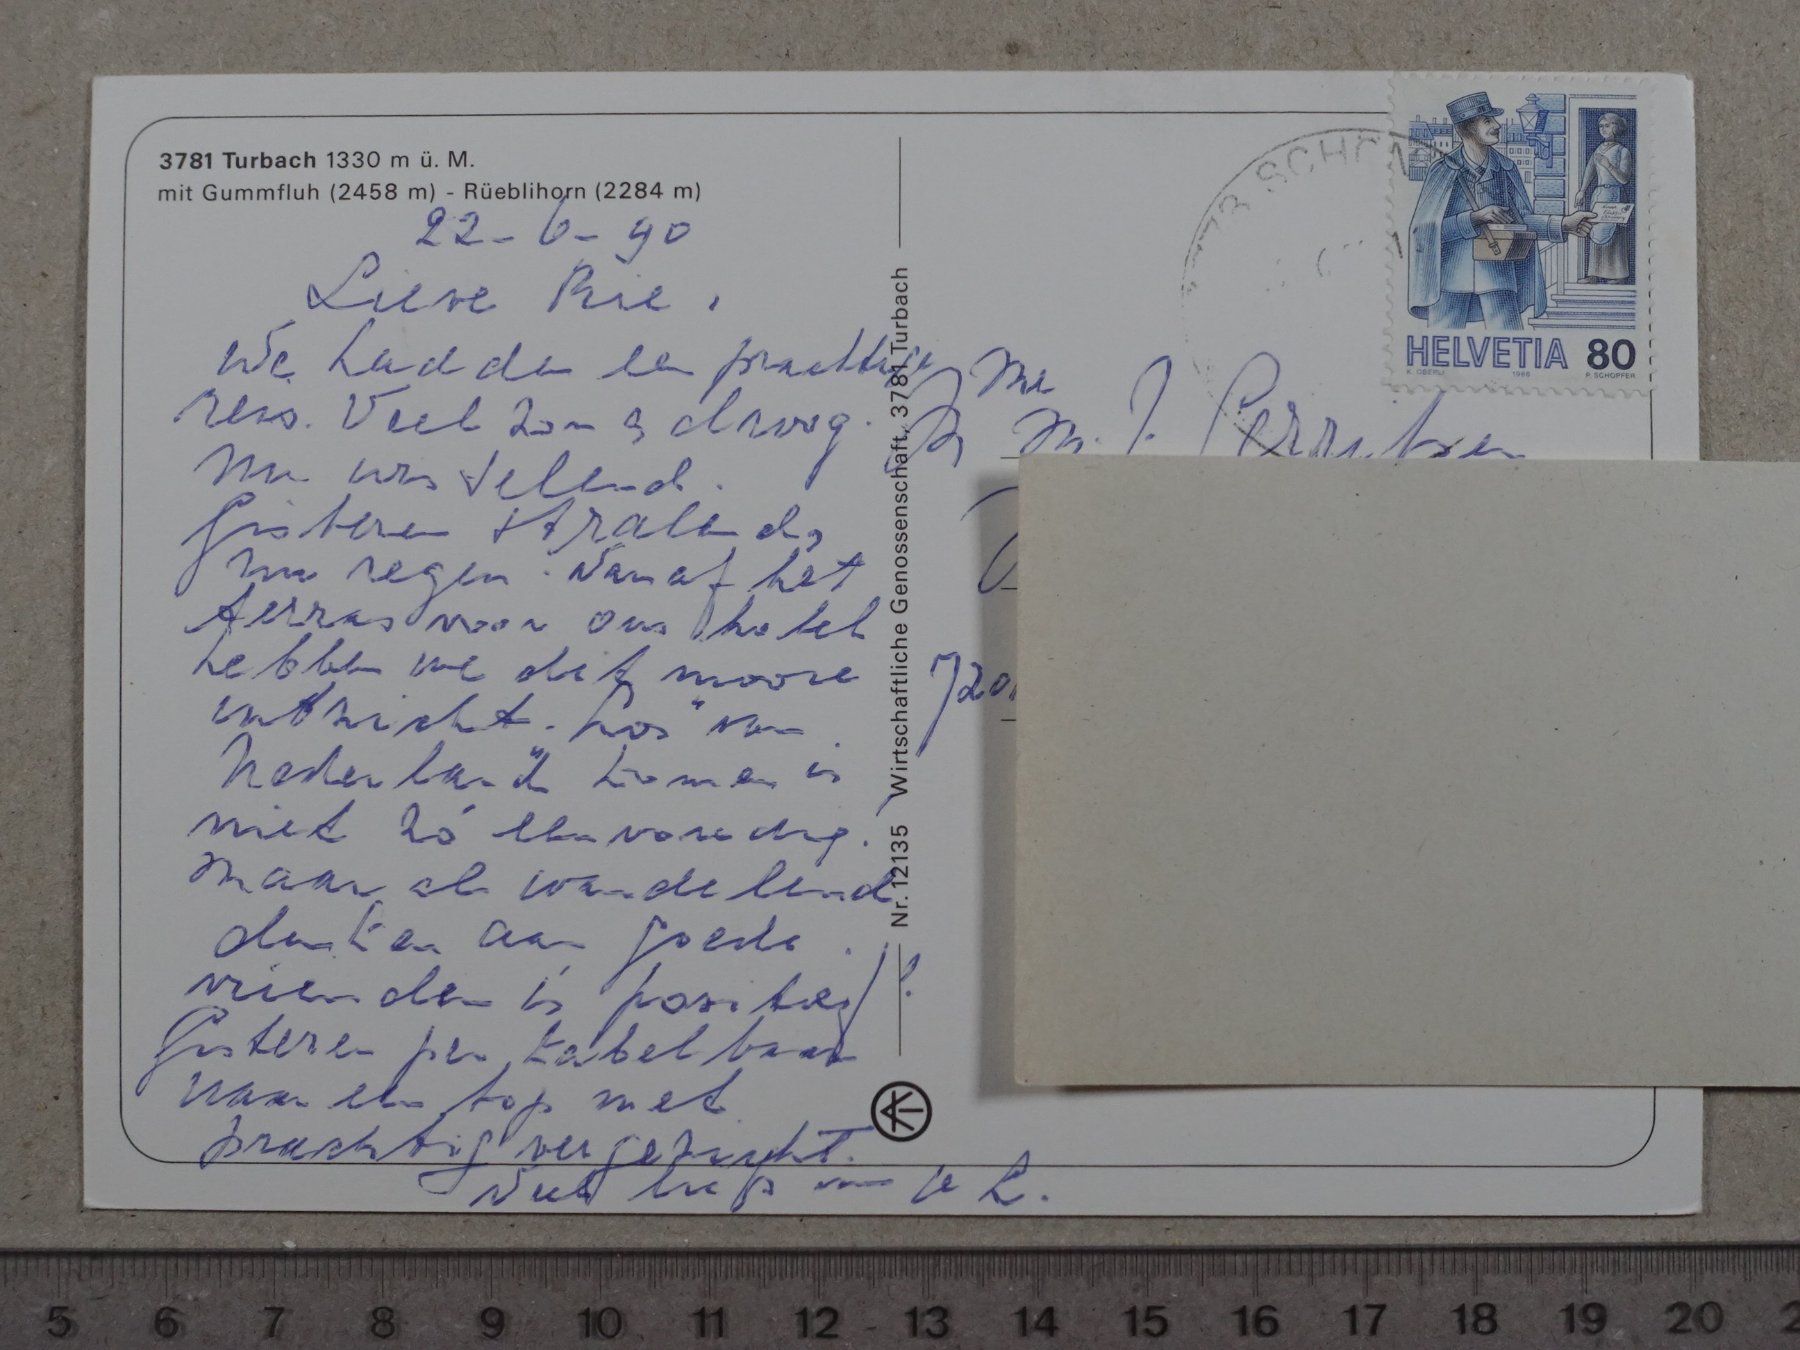 3781 Turbach 1330 m ü. M.
mit Gummfluh (2458 m) - Rüeblihorn (2284 m)
22-6-90
Lieve Rie,
We hadden een prachtige
reis. Veel zon & droog.
Nu wisselend.
Gisteren stralend,
nu regen. Vanaf het
terras voor ons hotel
hebben we dit mooie
uitzicht. Los "van
Nederland" komen is
niet zó eenvoudig.
Maar al wandelend
denken aan goede
vrienden is positief!
Gisteren per kabelbaan
naar een top met
prachtig vergezicht.
Veel liefs van
L.
Nr. 12135 Wirtschaftliche Genossenschaft, 3781 Turbach
SCHÖN
HELVETIA 80
K. OBERLI 1988 P. SCHOPFER
M. J.
720
5 6 7 8 9 10 11 12 13 14 15 16 17 18 19 20 2